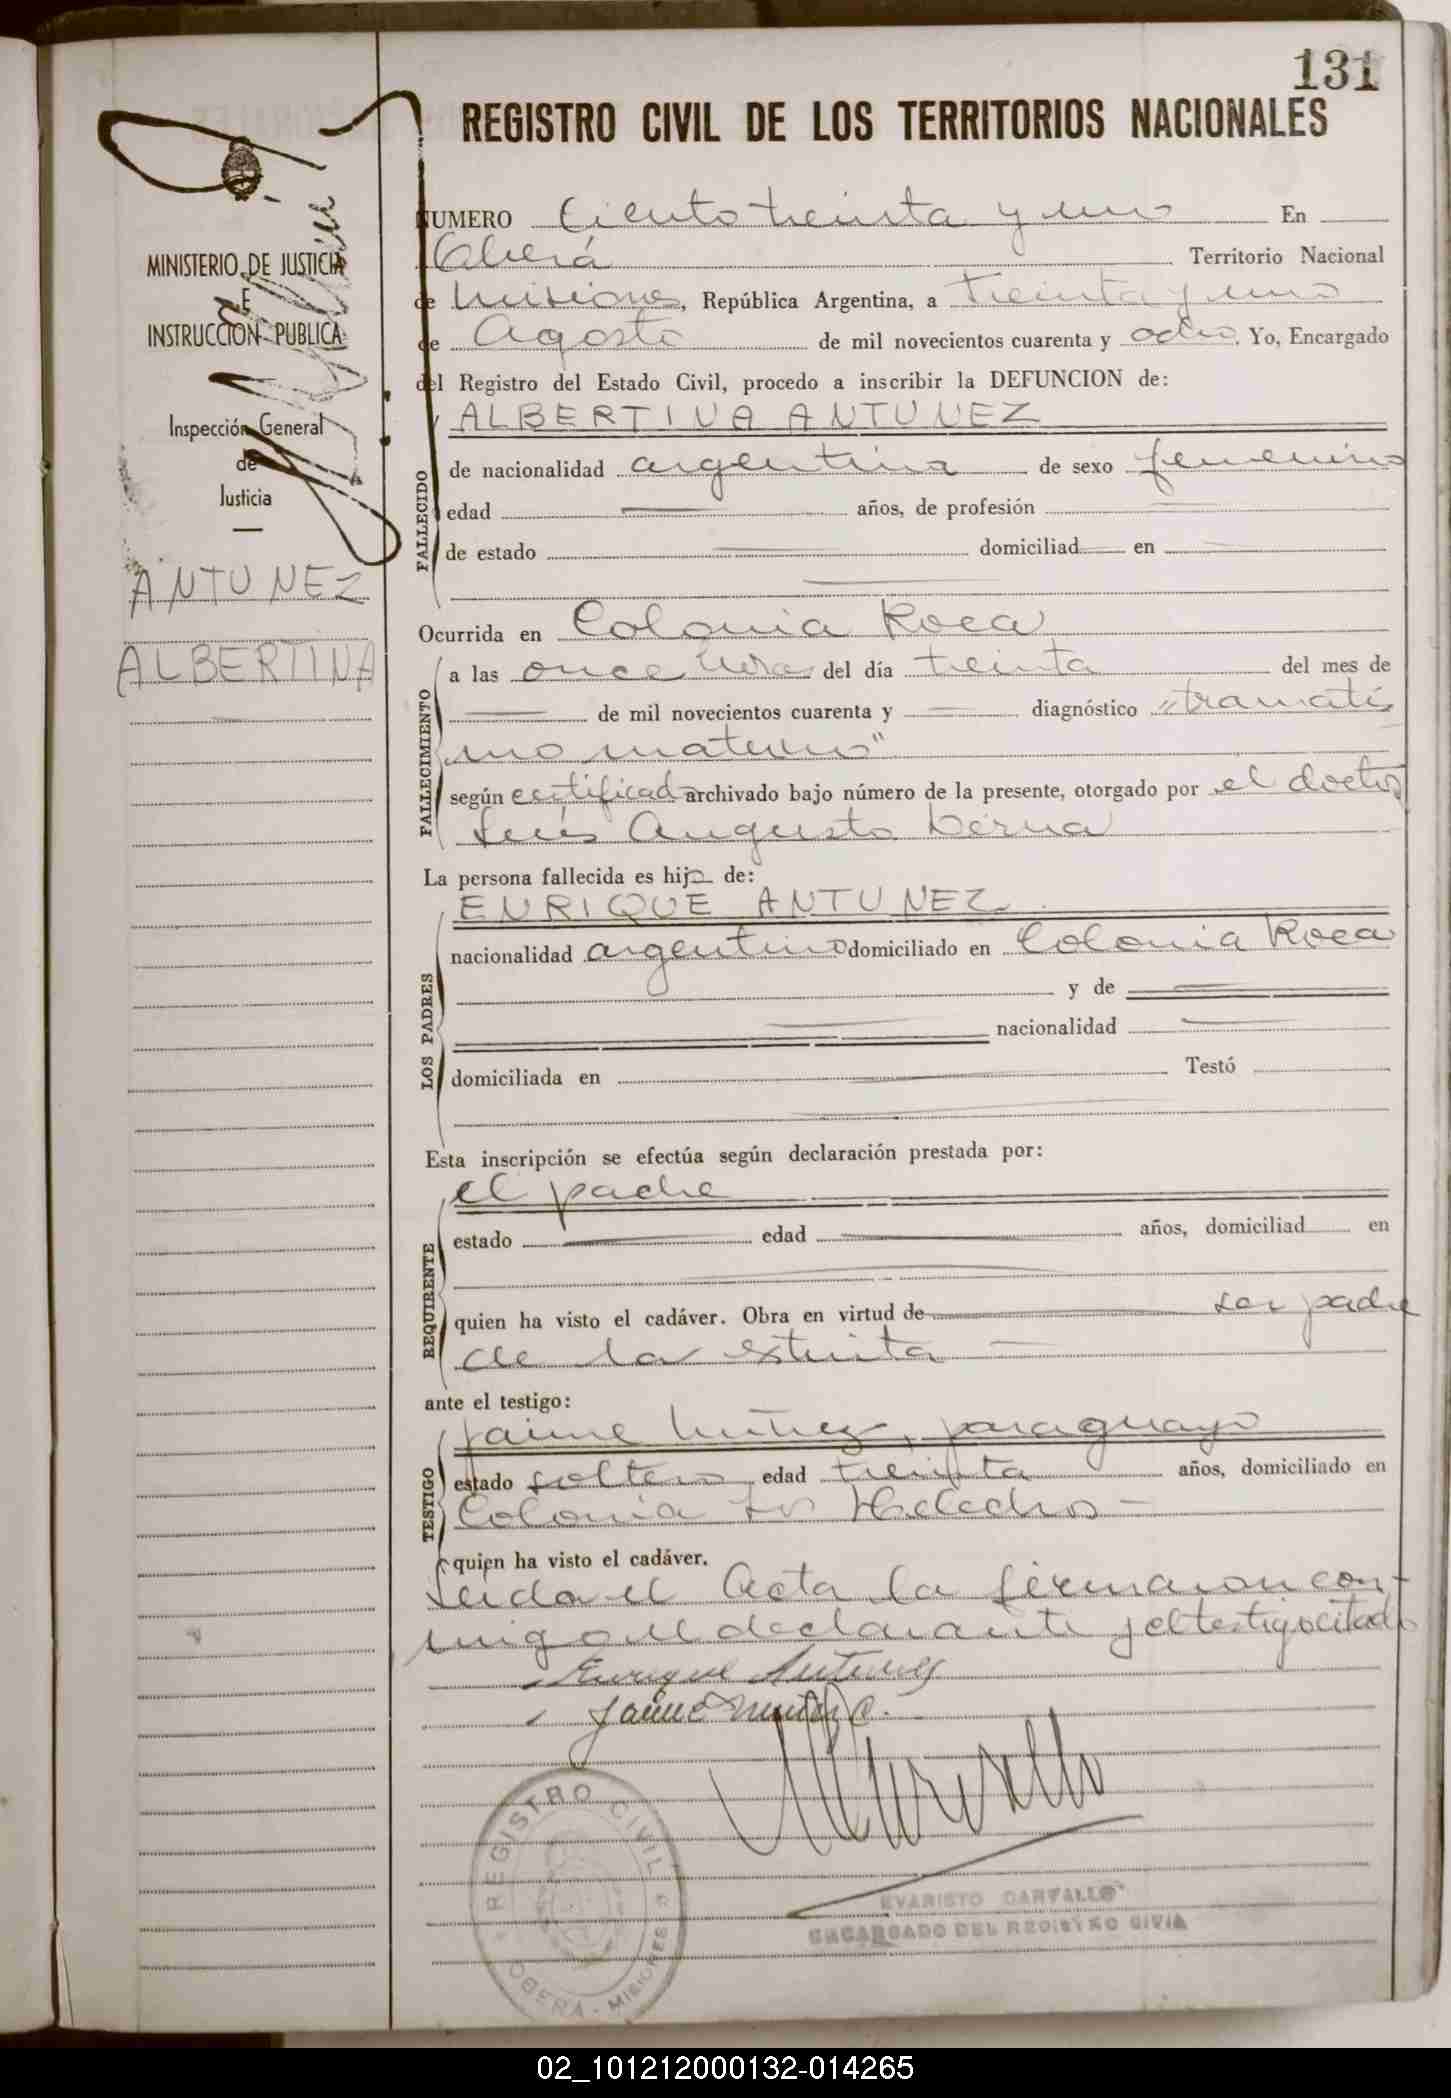 131
REGISTRO CIVIL DE LOS TERRITORIOS NACIONALES
MINISTERIO DE JUSTICIA
E
INSTRUCCION PUBLICA
Inspección General
de
Justicia
ANTUNEZ
ALBERTINA
NUMERO Ciento treinta y uno En
Oberá Territorio Nacional
de Misiones, República Argentina, a treinta y uno
de Agosto de mil novecientos cuarenta y ocho. Yo, Encargado
del Registro del Estado Civil, procedo a inscribir la DEFUNCION de:
ALBERTINA ANTUNEZ
FALLECIDO
de nacionalidad argentina de sexo femenino
edad años, de profesión
de estado domiciliad en
Ocurrida en Colonia Roca
FALLECIMIENTO
a las once horas del día treinta del mes de
de mil novecientos cuarenta y diagnóstico "tramatis
mo materno"
según certificad archivado bajo número de la presente, otorgado por el doctor
Luis Augusto Derna
La persona fallecida es hija de:
ENRIQUE ANTUNEZ
LOS PADRES
nacionalidad argentino domiciliado en Colonia Roca
y de
nacionalidad
domiciliada en Testó
Esta inscripción se efectúa según declaración prestada por:
el padre
REQUIRENTE
estado edad años, domiciliad en
quien ha visto el cadáver. Obra en virtud de ser padre
de la extinta
ante el testigo:
Jaime Núñez, paraguayo
TESTIGO
estado soltero edad treinta años, domiciliado en
Colonia Los Helechos
quien ha visto el cadáver.
Leida el Acta la firmaron con
migo el declarante y el testigo citado
Enrique Antunez
Jaime
REGISTRO CIVIL
OBERA - MISIONES
EVARISTO CARVALLO
ENCARGADO DEL REGISTRO CIVIL
02_101212000132-014265